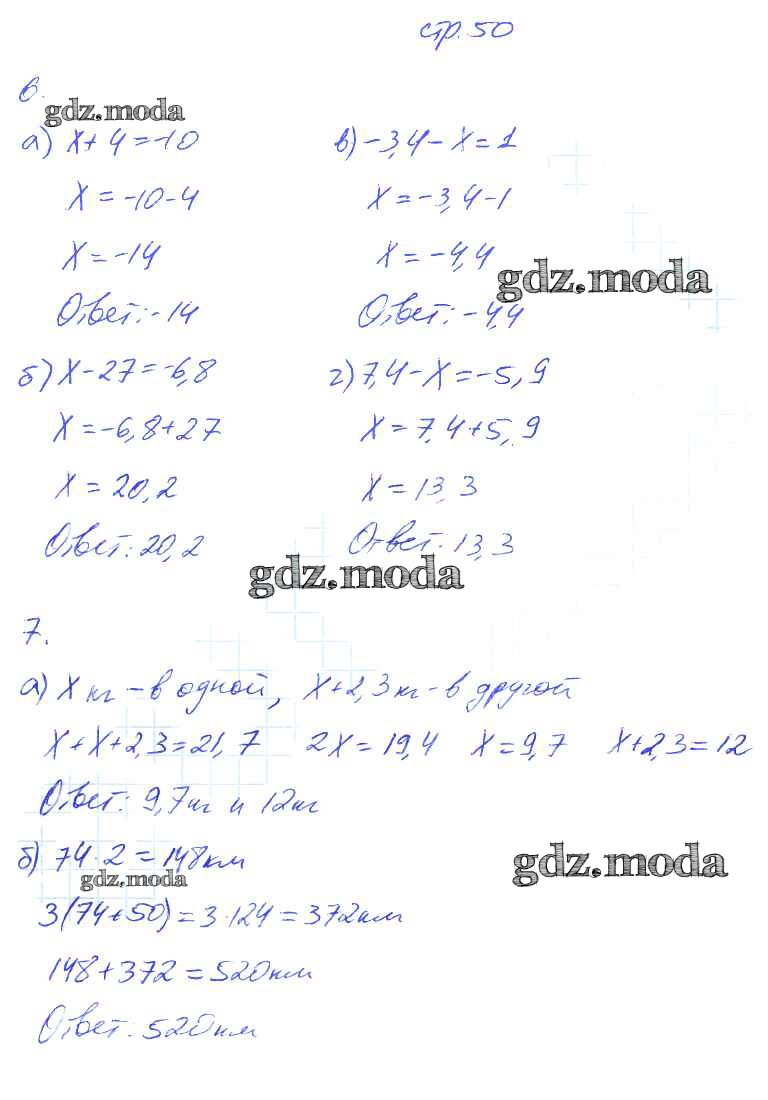 стр. 50
6.
gdz.moda
а) x + 4 = -10
x = -10 - 4
x = -14
Ответ: -14
в) -3,4 - x = 1
x = -3,4 - 1
x = -4,4
gdz.moda
Ответ: -4,4
б) x - 27 = -6,8
x = -6,8 + 27
x = 20,2
Ответ: 20,2
г) 7,4 - x = -5,9
x = 7,4 + 5,9
x = 13,3
Ответ: 13,3
gdz.moda
7.
а) x кг - в одной, x + 2,3 кг - в другой
x + x + 2,3 = 21,7 2x = 19,4 x = 9,7 x + 2,3 = 12
Ответ: 9,7 кг и 12 кг
б) 74 · 2 = 148 км
gdz.moda
gdz.moda
3(74 + 50) = 3 · 124 = 372 км
148 + 372 = 520 км
Ответ: 520 км